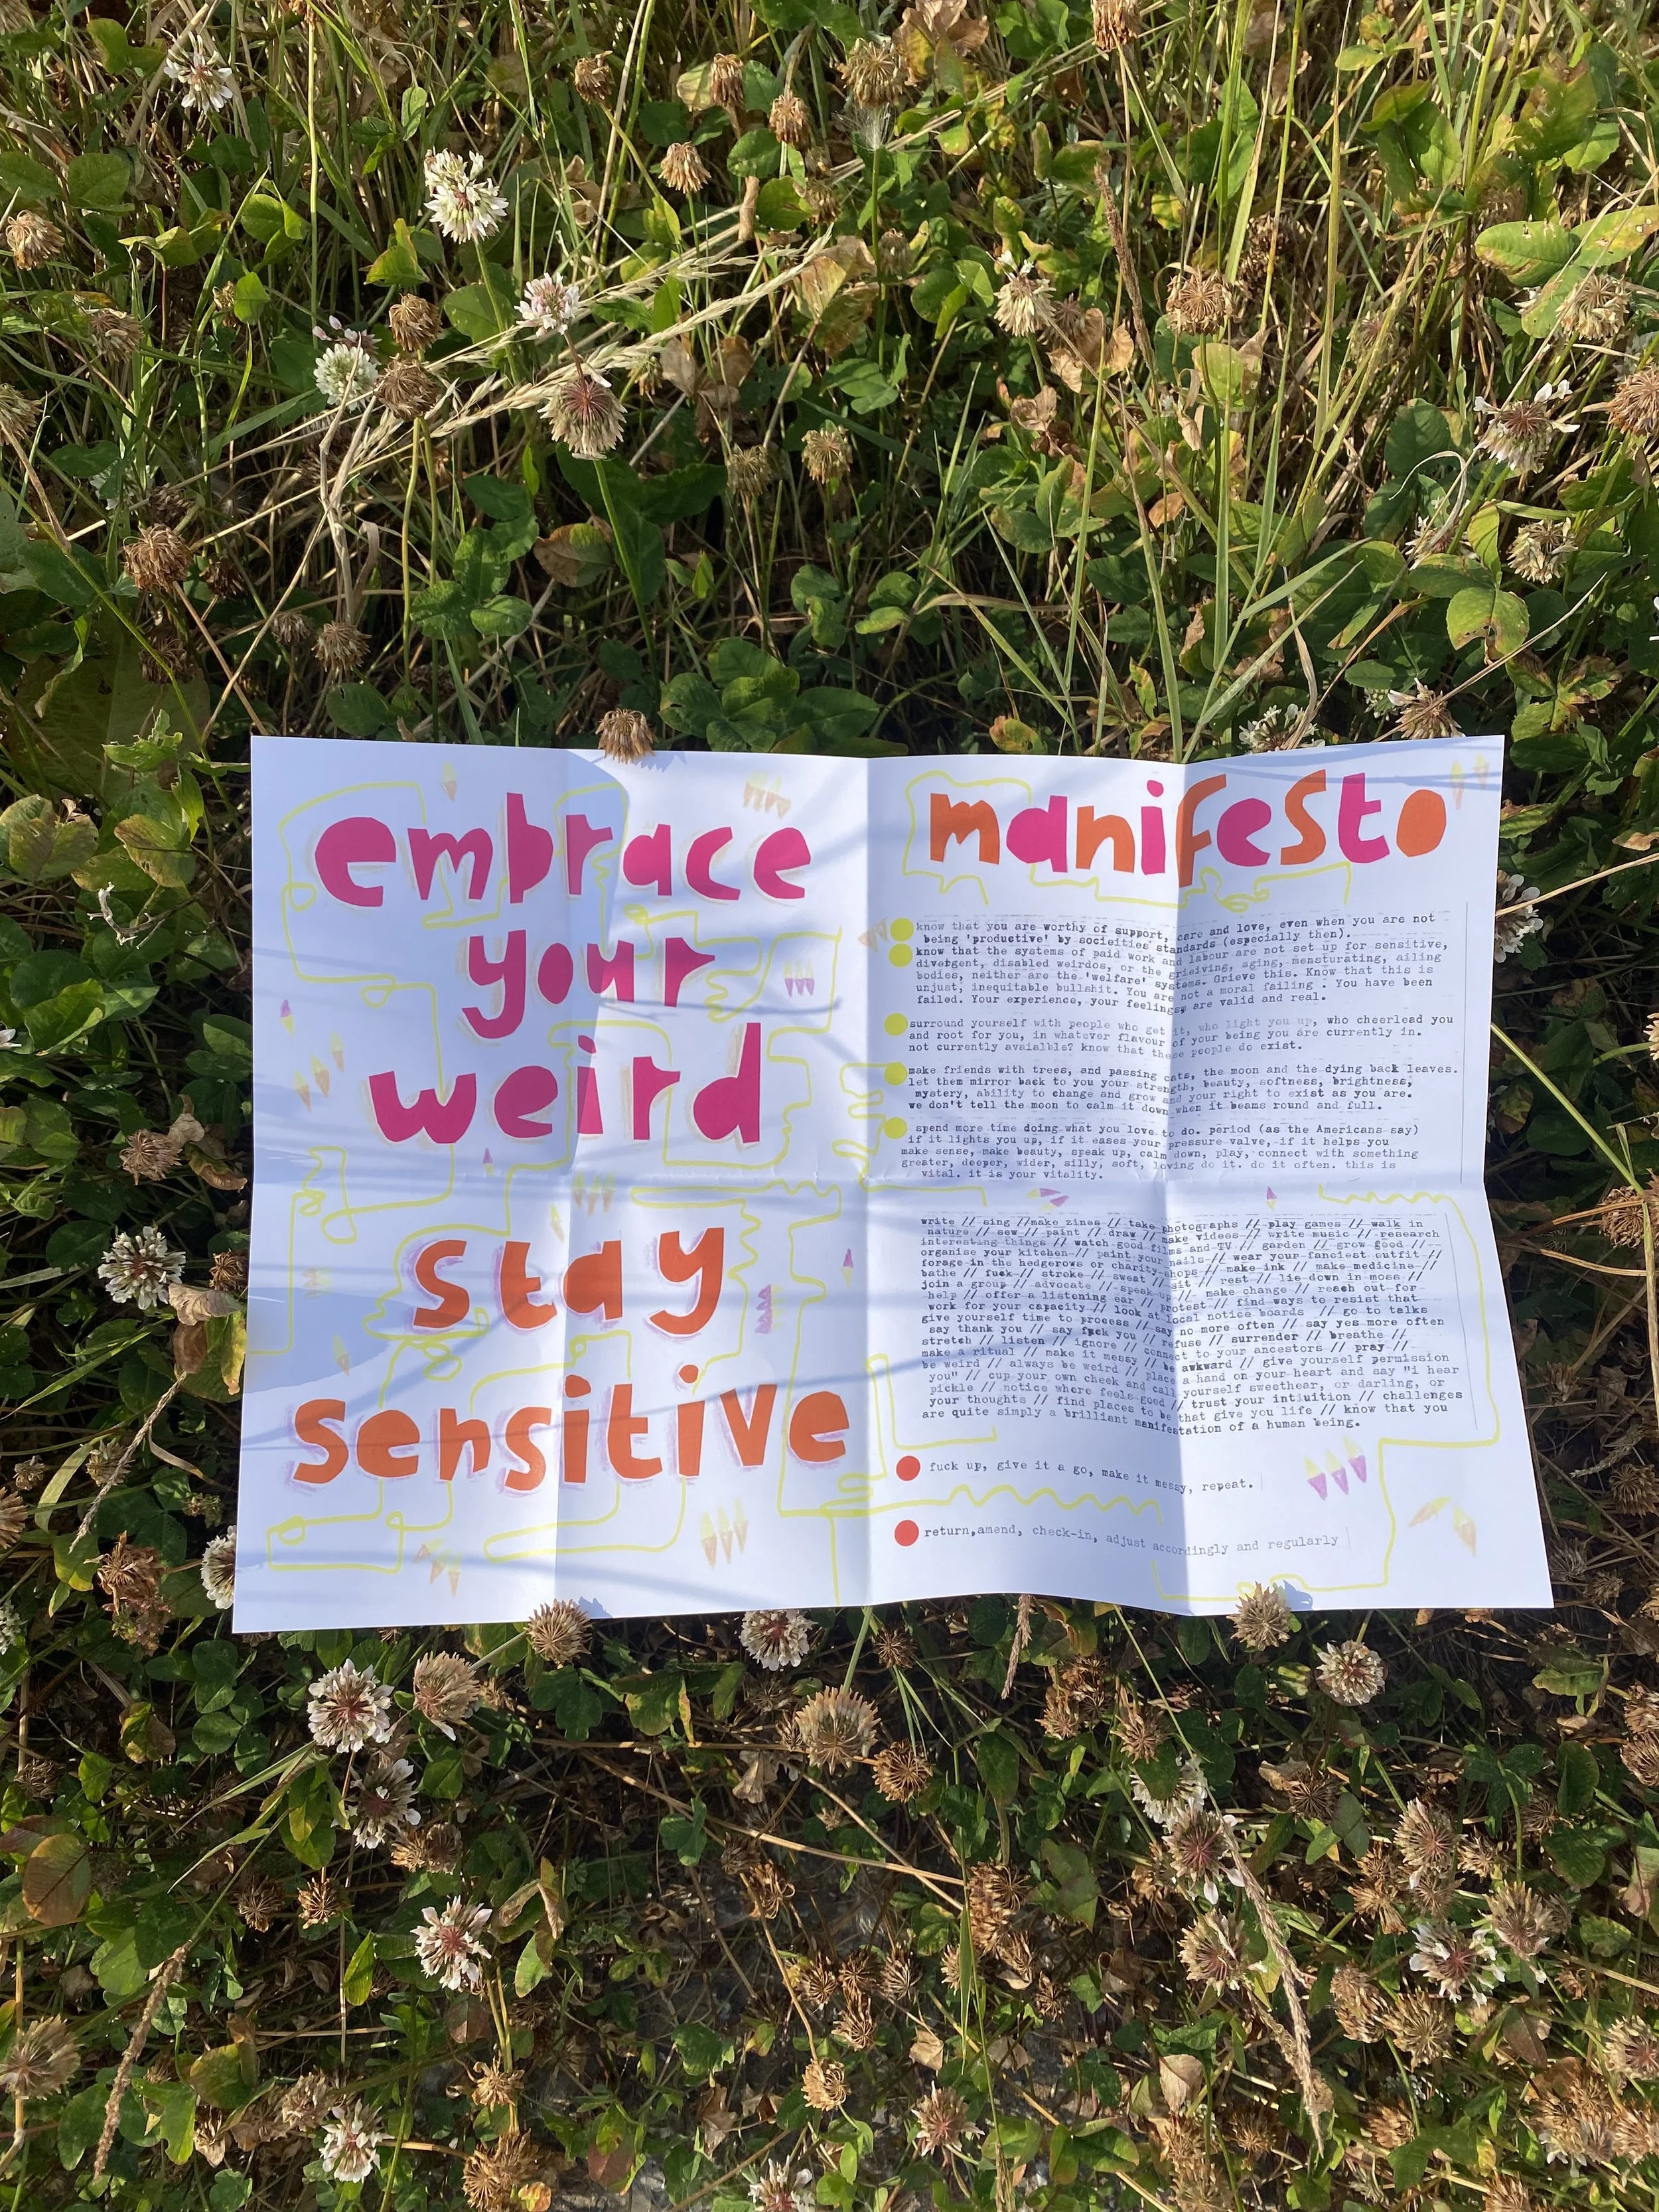 embrace
your
weird
stay
sensitive
manifesto
know that you are worthy of support, care and love, even when you are not
being 'productive' by socieities' standards (especially then).
know that the systems of paid work and labour are not set up for sensitive,
divergent, disabled weirdos, or the grieiving, aging, mensturating, ailing
bodies, neither are the 'welfare' systems. Grieve this. Know that this is
unjust, inequitable bullshit. You are not a moral failing . You have been
failed. Your experience, your feelings, are valid and real.
surround yourself with people who get it, who light you up, who cheerlead you
and root for you, in whatever flavour of your being you are currently in.
not currently avaialble? know that these people do exist.
make friends with trees, and passing cats, the moon and the dying back leaves.
let them mirror back to you your strength, beauty, softness, brightness,
mystery, ability to change and grow and your right to exist as you are.
we don't tell the moon to calm it down when it beams round and full.
spend more time doing what you love to do. period (as the Americans say)
if it lights you up, if it eases your pressure valve, if it helps you
make sense, make beauty, speak up, calm down, play, connect with something
greater, deeper, wider, silly, soft, loving do it. do it often. this is
vital. it is your vitality.
write // sing //make zines // take photographs // play games // walk in
nature // sew // paint // draw // make videos // write music // research
interesting things // watch good films and TV // garden // grow food //
organise your kitchen // paint your nails // wear your fanciest outfit //
forage in the hedgerows or charity shops // make ink // make medicine //
bathe // fuck // stroke // sweat // sit // rest // lie down in moss //
join a group // advocate // speak up // make change // reach out for
help // offer a listening ear // protest // find ways to resist that
work for your capacity // look at local notice boards // go to talks
give yourself time to process // say no more often // say yes more often
say thank you // say fuck you // refuse // surrender // breathe //
stretch // listen // ignore // connect to your ancestors // pray //
make a ritual // make it messy // be awkward // give yourself permission
be weird // always be weird // place a hand on your heart and say "i hear
you" // cup your own cheek and call yourself sweethear, or darling, or
pickle // notice where feels good // trust your intiuition // challenges
your thoughts // find places to be that give you life // know that you
are quite simply a brilliant manifestation of a human being.
fuck up, give it a go, make it messy, repeat.
return,amend, check-in, adjust accordingly and regularly